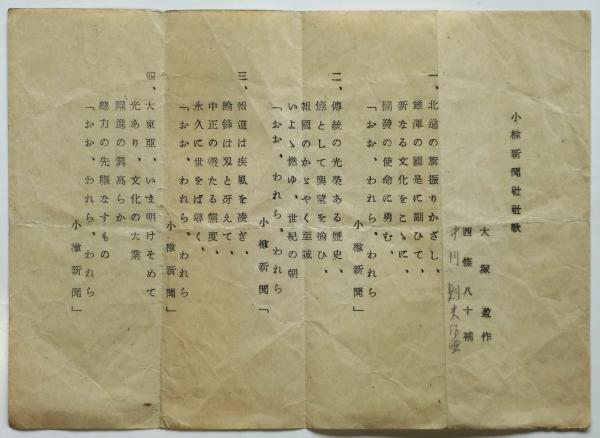 小樽新聞社社歌
大塚 盈作
西條八十補
中川 則夫作曲
一、北進の旗振りかざし、
雄渾の國是に副ひて、
新なる文化をこゝに、
開發の使命に勇む、
「おお、われら、われら
小樽新聞」
二、傳統の光榮ある歴史、
燦として輿望を擔ひ、
報國のかゞやく至誠
いよゝ燃ゆ、世紀の朝
「おお、われら、われら
小樽新聞」
三、報道は疾風を凌ぎ、
論鋒は刄と冴えて、
中正の儼たる態度、
永久に世をば導く、
「おお、われら、われら
小樽新聞」
四、大東亞、いま明けそめて
光あり、文化の大業
躍進の翼高らか
總力の先驅なすもの
「おお、われら、われら
小樽新聞」